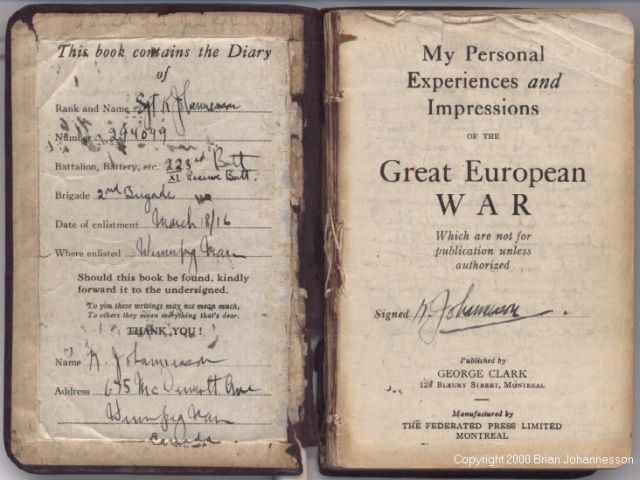 This book contains the Diary
of
Rank and Name Sgt K Johannesson
Number 294049
Battalion, Battery, etc. 223rd Batt
XI Reserve Batt.
Brigade 2nd Brigade
Date of enlistment March 18/16
Where enlisted Winnipeg Man
Should this book be found, kindly
forward it to the undersigned.
To you these writings may not mean much,
To others they mean everything that's dear.
THANK YOU!
Name K. Johannesson
Address 675 McDermott Ave
Winnipeg Man
Canada
My Personal
Experiences and
Impressions
OF THE
Great European
WAR
Which are not for
publication unless
authorized
Signed K. Johannesson
Published by
GEORGE CLARK
128 BLEURY STREET, MONTREAL
Manufactured by
THE FEDERATED PRESS LIMITED
MONTREAL
Copyright 2000 Brian Johannesson